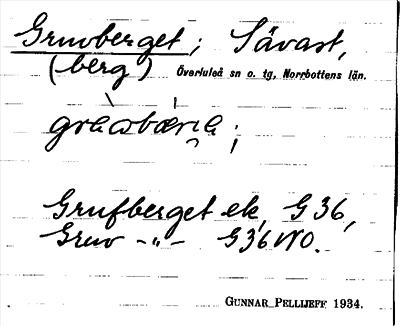 Gruvberget; Sävast,
(berg) Överluleå sn o. tg, Norrbottens län.
Grufberget ek, G 36,
Gruv -"- G36NO.
GUNNAR PELLIJEFF 1934.